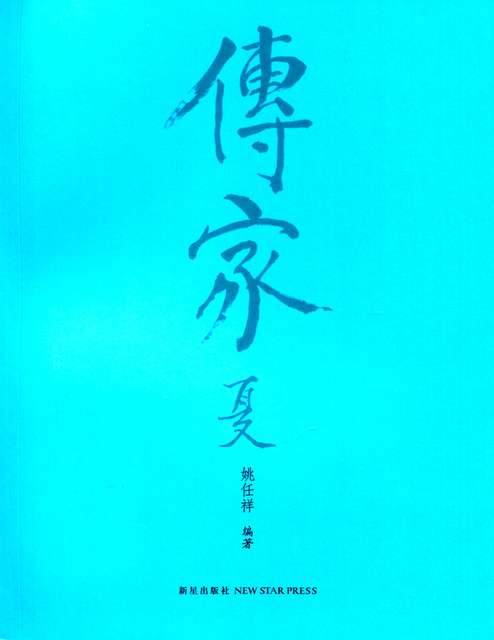 傳家
夏
姚任祥 编著
新星出版社 NEW STAR PRESS